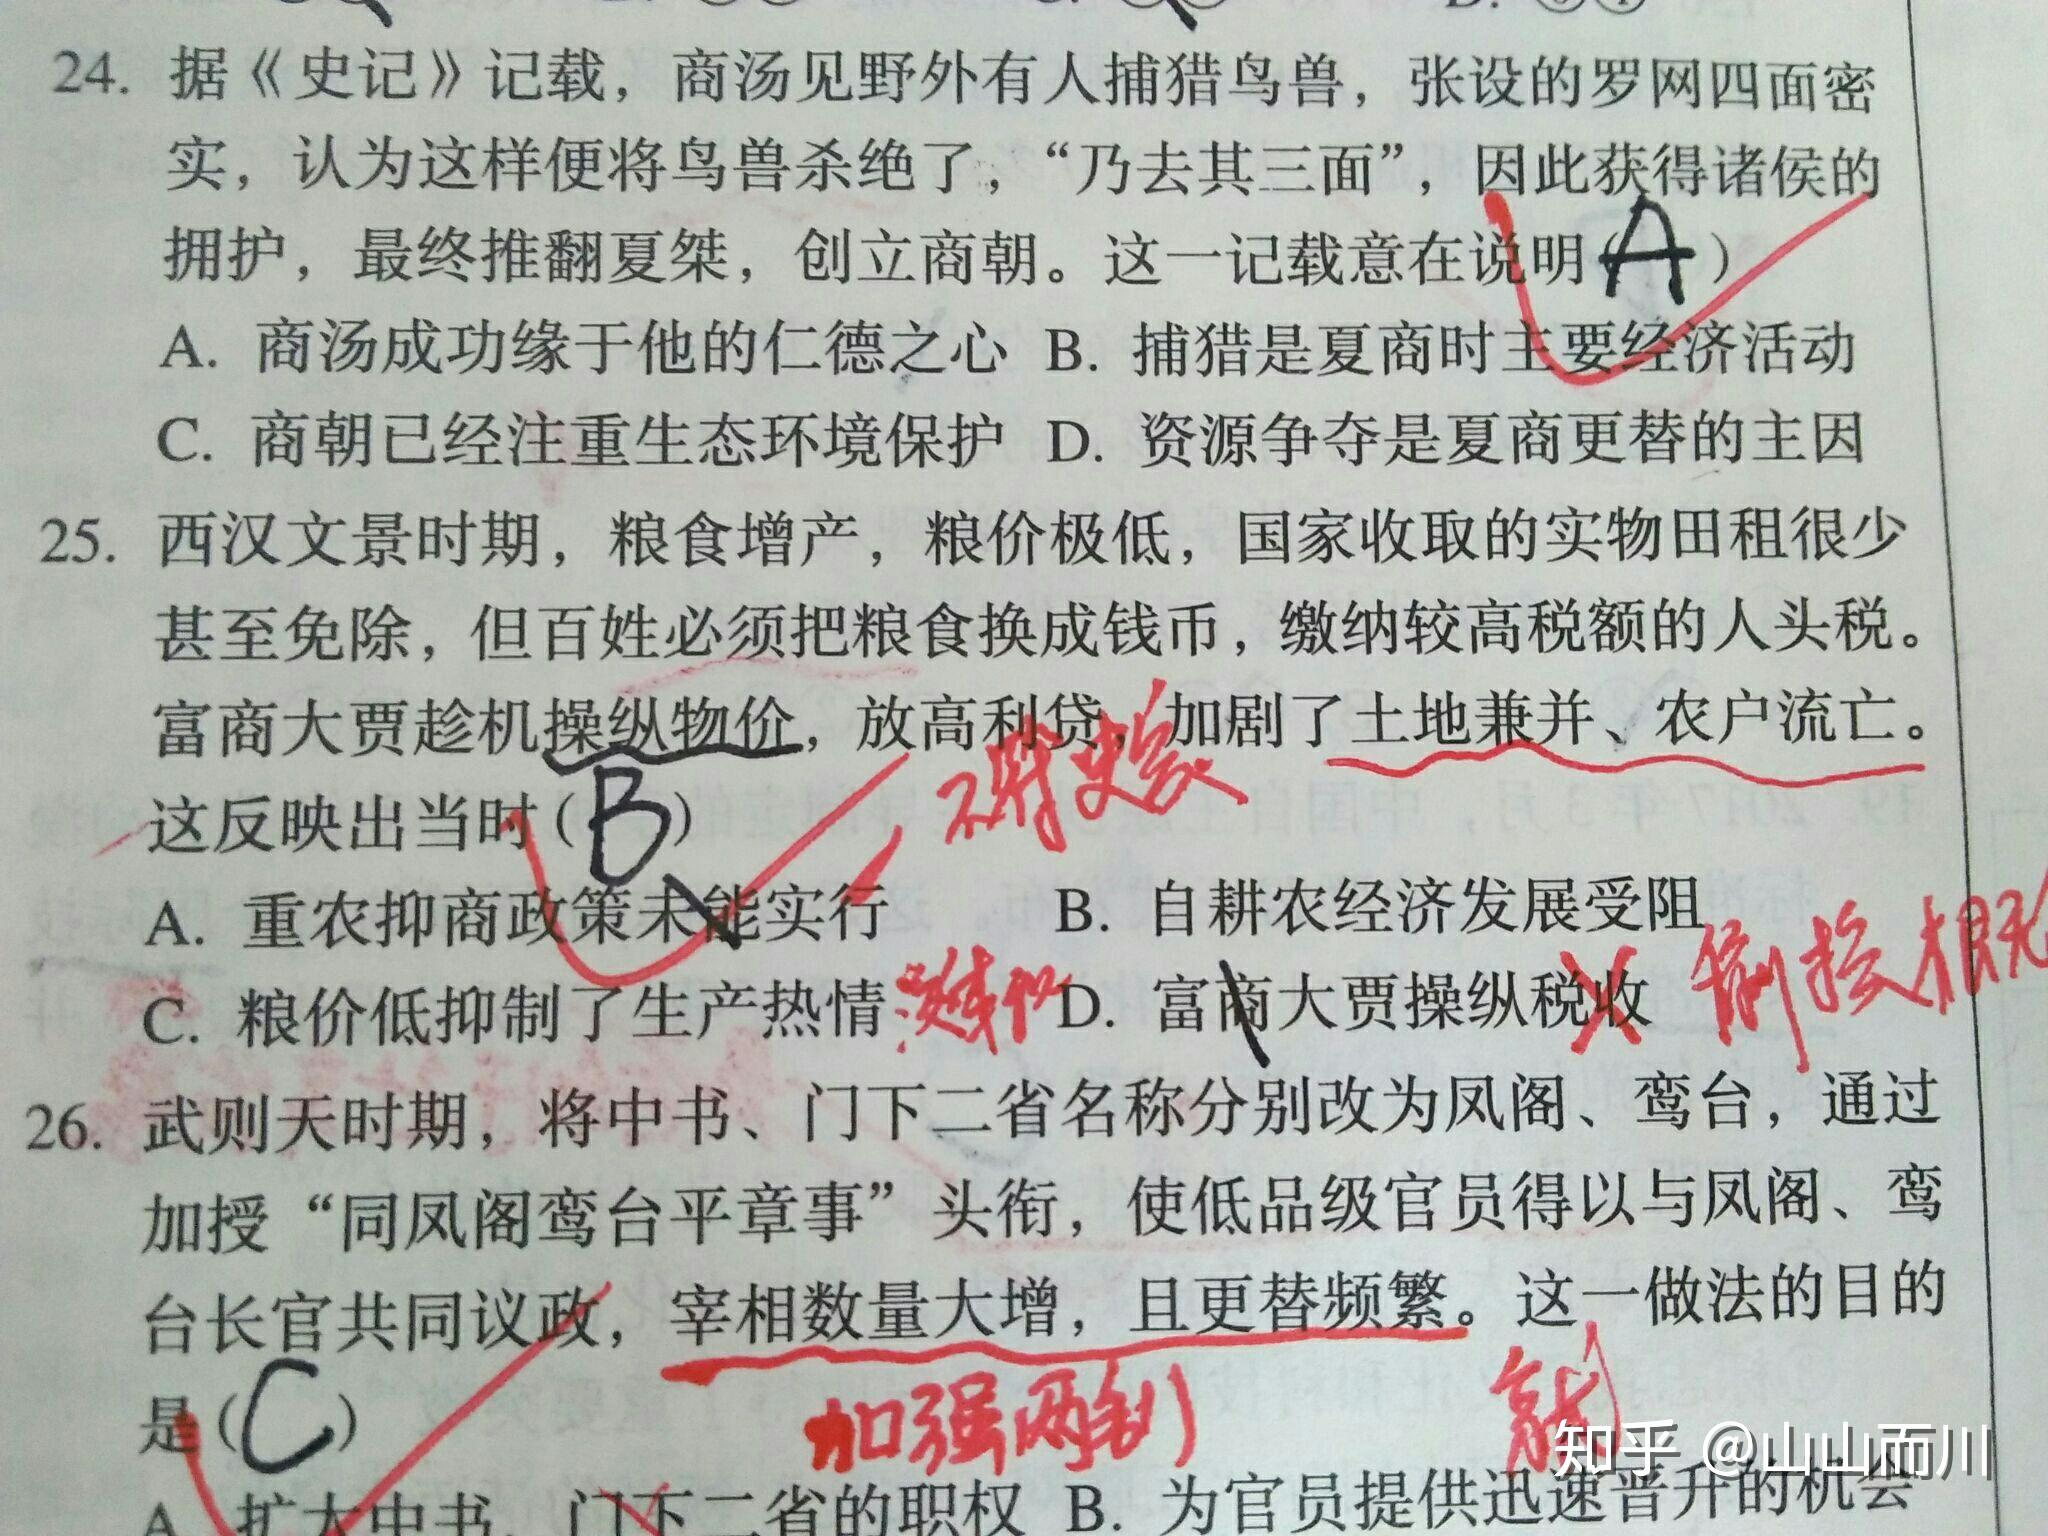 24. 据《史记》记载，商汤见野外有人捕猎鸟兽，张设的罗网四面密
实，认为这样便将鸟兽杀绝了，“乃去其三面”，因此获得诸侯的
拥护，最终推翻夏桀，创立商朝。这一记载意在说明(A)
A. 商汤成功缘于他的仁德之心 B. 捕猎是夏商时主要经济活动
C. 商朝已经注重生态环境保护 D. 资源争夺是夏商更替的主因
25. 西汉文景时期，粮食增产，粮价极低，国家收取的实物田租很少
甚至免除，但百姓必须把粮食换成钱币，缴纳较高税额的人头税。
富商大贾趁机操纵物价，放高利贷，加剧了土地兼并、农户流亡。
这反映出当时(B)
A. 重农抑商政策未能实行 B. 自耕农经济发展受阻
C. 粮价低抑制了生产热情 D. 富商大贾操纵税收
26. 武则天时期，将中书、门下二省名称分别改为凤阁、鸾台，通过
加授“同凤阁鸾台平章事”头衔，使低品级官员得以与凤阁、鸾
台长官共同议政，宰相数量大增，且更替频繁。这一做法的目的
是(C)
加强
知乎 @山山而川
A. 扩大中书、门下二省的职权 B. 为官员提供迅速晋升的机会